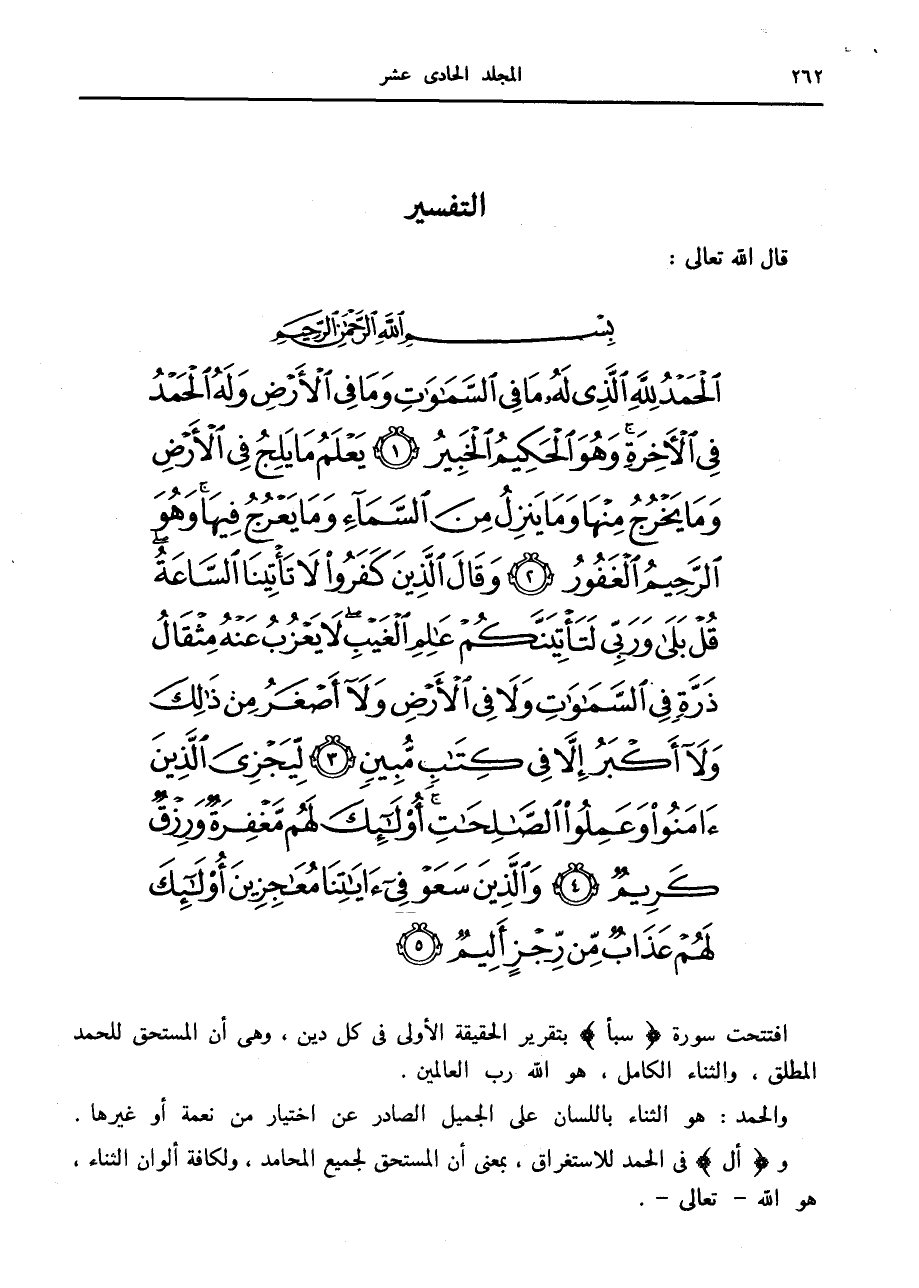 ٢٦٢ المجلد الحادى عشر
التفسير
قال الله تعالى :
بِسْمِ اللَّهِ الرَّحْمَٰنِ الرَّحِيمِ
ٱلْحَمْدُ لِلَّهِ ٱلَّذِى لَهُۥ مَا فِى ٱلسَّمَٰوَٰتِ وَمَا فِى ٱلْأَرْضِ وَلَهُ ٱلْحَمْدُ
فِى ٱلْأَخِرَةِ ۚ وَهُوَ ٱلْحَكِيمُ ٱلْخَبِيرُ ١ يَعْلَمُ مَا يَلِجُ فِى ٱلْأَرْضِ
وَمَا يَخْرُجُ مِنْهَا وَمَا يَنزِلُ مِنَ ٱلسَّمَآءِ وَمَا يَعْرُجُ فِيهَا ۚ وَهُوَ
ٱلرَّحِيمُ ٱلْغَفُورُ ٢ وَقَالَ ٱلَّذِينَ كَفَرُوا۟ لَا تَأْتِينَا ٱلسَّاعَةُ ۖ
قُلْ بَلَىٰ وَرَبِّى لَتَأْتِيَنَّكُمْ عَٰلِمِ ٱلْغَيْبِ ۖ لَا يَعْزُبُ عَنْهُ مِثْقَالُ
ذَرَّةٍ فِى ٱلسَّمَٰوَٰتِ وَلَا فِى ٱلْأَرْضِ وَلَآ أَصْغَرُ مِن ذَٰلِكَ
وَلَآ أَكْبَرُ إِلَّا فِى كِتَٰبٍ مُّبِينٍ ٣ لِّيَجْزِىَ ٱلَّذِينَ
ءَامَنُوا۟ وَعَمِلُوا۟ ٱلصَّٰلِحَٰتِ ۚ أُو۟لَٰٓئِكَ لَهُم مَّغْفِرَةٌ وَرِزْقٌ
كَرِيمٌ ٤ وَٱلَّذِينَ سَعَوْ فِىٓ ءَايَٰتِنَا مُعَٰجِزِينَ أُو۟لَٰٓئِكَ
لَهُمْ عَذَابٌ مِّن رِّجْزٍ أَلِيمٌ ٥
افتتحت سورة ﴿ سبأ ﴾ بتقرير الحقيقة الأولى فى كل دين ، وهى أن المستحق للحمد
المطلق ، والثناء الكامل ، هو الله رب العالمين .
والحمد : هو الثناء باللسان على الجميل الصادر عن اختيار من نعمة أو غيرها .
و ﴿ أل ﴾ فى الحمد للاستغراق ، بمعنى أن المستحق لجميع المحامد ، ولكافة ألوان الثناء ،
هو الله – تعالى – .